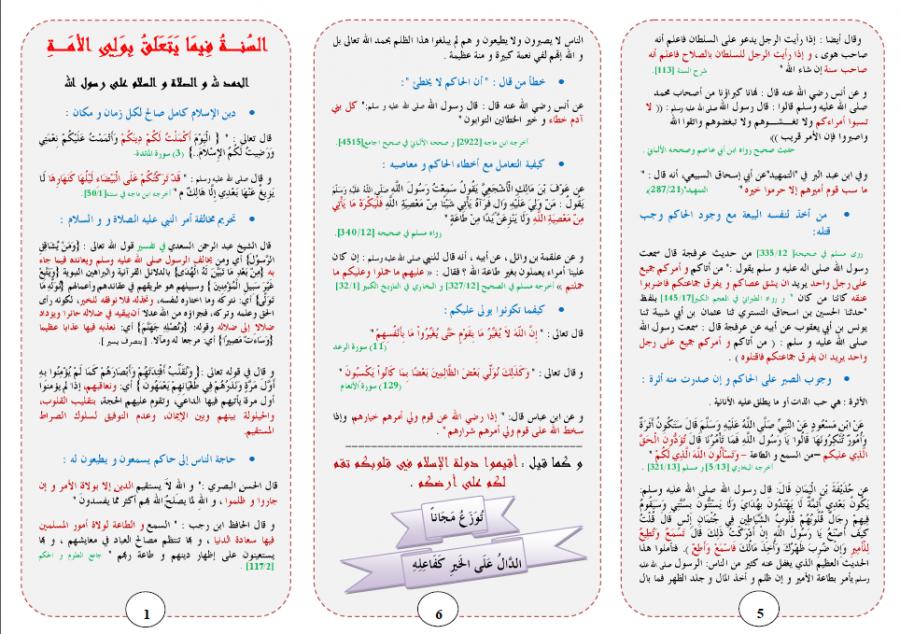 وقال أيضا : إذا رأيت الرجل يدعو على السلطان فاعلم أنه
صاحب هوى ، و إذا رأيت الرجل للسلطان بالصلاح فاعلم أنه
صاحب سنة إن شاء الله " شرح السنة [113]
و عن أنس رضي الله عنه قال : نهانا كبراؤنا من أصحاب محمد
صلى الله عليه وسلم قالوا : قال رسول الله صلى الله عليه و سلم : (( لا
تسبوا أمراءكم ولا تغشوهم ولا تبغضوهم واتقوا الله
واصبروا فإن الأمر قريب ))
حديث صحيح رواه ابن أبي عاصم وصححه الألباني .
وفي ابن عبد البر في "التمهيد"عن أبي إسحاق السبيعي، أنه قال : "
ما سب قوم أميرهم إلا حرموا خيره " التمهيد"(287/21)
• من أخذ لنفسه البيعة مع وجود الحاكم وجب
قتله:
روى مسلم في صحيحه[335/12] من حديث عرفجة قال سمعت
رسول الله صلى اله عليه و سلم يقول :" من أتاكم و أمركم جميع
على رجل واحد يريد ان يشق عصاكم و يفرق جماعتكم فاضربوا
عنقه كائنا من كان " و رواه الطبراني في المعجم الكبير[145/17] بلفظ
"حدثنا الحسين بن اسحاق التستري ثنا عثمان بن أبي شيبة ثنا
يونس بن أبي يعفوب عن أبيه عن عرفجة قال : سمعت رسول الله
صلى الله عليه و سلم : ( من أتاكم و أمركم جميع على رجل
واحد يريد ان يفرق جماعتكم فاقتلوه )
• وجوب الصبر على الحاكم و إن صدرت منه أثرة :
الأثرة : هي حب الذات أو ما يطلق عليه الأنانية .
عَنْ ابْنِ مَسْعُودٍ عَنْ النَّبِيِّ صَلَّى اللَّهُ عَلَيْهِ وَسَلَّمَ قَالَ سَتَكُونُ أَثَرَةٌ
وَأُمُورٌ تُنْكِرُونَهَا قَالُوا يَا رَسُولَ اللَّهِ فَمَا تَأْمُرُنَا قَالَ تُؤَدُّونَ الْحَقَّ
الَّذِي عَلَيْكُمْ –من السمع و الطاعة – وَتَسْأَلُونَ اللَّهَ الَّذِي لَكُمْ "
أخرجه البخاري [5/13] و مسلم [321/13]
عَن حُذَيْفَةُ بْنِ الْيَمَانِ قَالَ: قال رسول الله صلى الله عليه وسلم:
يَكُونُ بَعْدِي أَئِمَّةٌ لَا يَهْتَدُونَ بِهُدَايَ وَلَا يَسْتَنُّونَ بِسُنَّتِي وَسَيَقُومُ
فِيهِمْ رِجَالٌ قُلُوبُهُمْ قُلُوبُ الشَّيَاطِينِ فِي جُثْمَانِ إِنْسٍ قَالَ قُلْتُ
كَيْفَ أَصْنَعُ يَا رَسُولَ اللَّهِ إِنْ أَدْرَكْتُ ذَلِكَ قَالَ تَسْمَعُ وَتُطِيعُ
لِلْأَمِيرِ وَإِنْ ضُرِبَ ظَهْرُكَ وَأُخِذَ مَالُكَ فَاسْمَعْ وَأَطِعْ ). فتأملوا هذا
الحديث العظيم الذي يغفل عنه كثير من الناس: الرسول صلى الله عليه
وسلم يأمر بطاعة الأمير و إن ظلم و أخذ المال و جلد الظهر فما بال
5
الناس لا يصبرون ولا يطيعون و هم لم يبلغوا هذا الظلم بحمد الله تعالى بل
و الله إنهم لفي نعمة كبيرة و منة عظيمة .
• خطأ من قال : " أن الحاكم لا يخطئ ":
عن أنس رضي الله عنه قال : قال رسول الله صلى الله عليه و سلم :" كل بني
آدم خطاء و خير الخطائين التوابون "
أخرجه ابن ماجه [2922] و صححه الألباني في صحيح الجامع[4515]
• كيفية التعامل مع أخطاء الحاكم و معاصيه :
عَن عَوْفَ بْن مَالِكٍ الْأَشْجَعِيَّ يَقُولُ سَمِعْتُ رَسُولَ اللَّهِ صَلَّى اللَّهُ عَلَيْهِ وَسَلَّمَ
يَقُولُ : مَنْ وَلِيَ عَلَيْهِ وَالٍ فَرَآهُ يَأْتِي شَيْئًا مِنْ مَعْصِيَةِ اللَّهِ فَلْيَكْرَهْ مَا يَأْتِي
مِنْ مَعْصِيَةِ اللَّهِ وَلَا يَنْزِعَنَّ يَدًا مِنْ طَاعَةٍ "
رواه مسلم في صحيحه [340/12]
عن علقمة بن وائل ، عن أبيه ، أنه قال للنبي صلى الله عليه وسلم : إن كان
علينا أمراء يعملون بغير طاعة الله ؟ فقال : « عليهم ما حملوا وعليكم ما
حملتم » أخرجه مسلم في الصحيح [327/12] و البخاري في التاريخ الكبير [32/1]
• كيفما تكونوا يولى عليكم :
قال تعالى : " إِنَّ اللَّهَ لَا يُغَيِّرُ مَا بِقَوْمٍ حَتَّى يُغَيِّرُوا مَا بِأَنْفُسِهِمْ "
(11) سورة الرعد
و قال تعالى : " وَكَذَلِكَ نُوَلِّي بَعْضَ الظَّالِمِينَ بَعْضًا بِمَا كَانُوا يَكْسِبُونَ "
(129) سورة الأنعام
و عن ابن عباس قال: " إذا رضي الله عن قوم ولي أمرهم خيارهم، وإذا
سخط الله على قوم ولي أمرهم شرارهم " .
و كما قيل : أقيموا دولة الإسلام في قلوبكم تقم
لكم على أرضكم .
تُوزَعُ مَجَاناً
الدَّالُ عَلَى الخَيرِ كَفَاعِلِهِ
6
السُنةُ فِيمَا يَتَعَلَقُ بِوَلِي الأمَةِ
الحمد لله و الصلاة و السلام على رسول الله
• دين الإسلام كامل صالح لكل زمان و مكان :
قال تعالى : " { الْيَوْمَ أَكْمَلْتُ لَكُمْ دِينَكُمْ وَأَتْمَمْتُ عَلَيْكُمْ نِعْمَتِي
وَرَضِيتُ لَكُمُ الْإِسْلَامَ..} (3) سورة المائدة.
و قال صلى الله عليه و سلم : " قَدْ تَرَكْتُكُمْ عَلَى الْبَيْضَاءِ لَيْلُهَا كَنَهَارِهَا لَا
يَزِيغُ عَنْهَا بَعْدِي إِلَّا هَالِكٌ م " أخرجه ابن ماجه في سننه[50/1]
• تحريم مخالفة أمر النبي عليه الصلاة ر و السلام :
قال الشيخ عبد الرحمن السعدي في تفسير قول الله تعالى : {وَمَنْ يُشَاقِقِ
الرَّسُولَ} أي ومن يخالف الرسول صلى الله عليه وسلم ويعانده فيما جاء
به {مِنْ بَعْدِ مَا تَبَيَّنَ لَهُ الْهُدَى} بالدلائل القرآنية والبراهين النبوية {وَيَتَّبِعْ
غَيْرَ سَبِيلِ الْمُؤْمِنِينَ } وسبيلهم هو طريقهم في عقائدهم وأعمالهم {نُوَلِّهِ مَا
تَوَلَّى} أي: نتركه وما اختاره لنفسه، ونخذله فلا نوفقه للخير، لكونه رأى
الحق وعلمه وتركه، فجزاؤه من الله عدلا أن يبقيه في ضلاله حائرا ويزداد
ضلالا إلى ضلاله وقوله: {وَنُصْلِهِ جَهَنَّمَ} أي: نعذبه فيها عذابا عظيما
{وَسَاءَتْ مَصِيرًا} أي: مرجعا له ومآلا . [ بتصرف يسير ].
و قال تعالى : { وَنُقَلِّبُ أَفْئِدَتَهُمْ وَأَبْصَارَهُمْ كَمَا لَمْ يُؤْمِنُوا بِهِ
أَوَّلَ مَرَّةٍ وَنَذَرُهُمْ فِي طُغْيَانِهِمْ يَعْمَهُونَ } أي: ونعاقبهم، إذا لم يؤمنوا
أول مرة يأتيهم فيها الداعي، وتقوم عليهم الحجة، بتقليب القلوب،
والحيلولة بينهم وبين الإيمان، وعدم التوفيق لسلوك الصراط
المستقيم.
• حاجة الناس إلى حاكم يسمعون و يطيعون له :
قال الحسن البصري : " و الله لا يستقيم الدين إلا بولاة الأمر و إن
جاروا و ظلموا ، و الله لما يصلح الله بهم أكثر مما يفسدون "
و قال الحافظ ابن رجب : " السمع و الطاعة لولاة أمور المسلمين
فيها سعادة الدنيا ، و بها تنتظم مصالح العباد في معايشهم ، و بها
يستعينون على إظهار دينهم و طاعة ربهم " جامع العلوم و الحكم
[117/2]
1